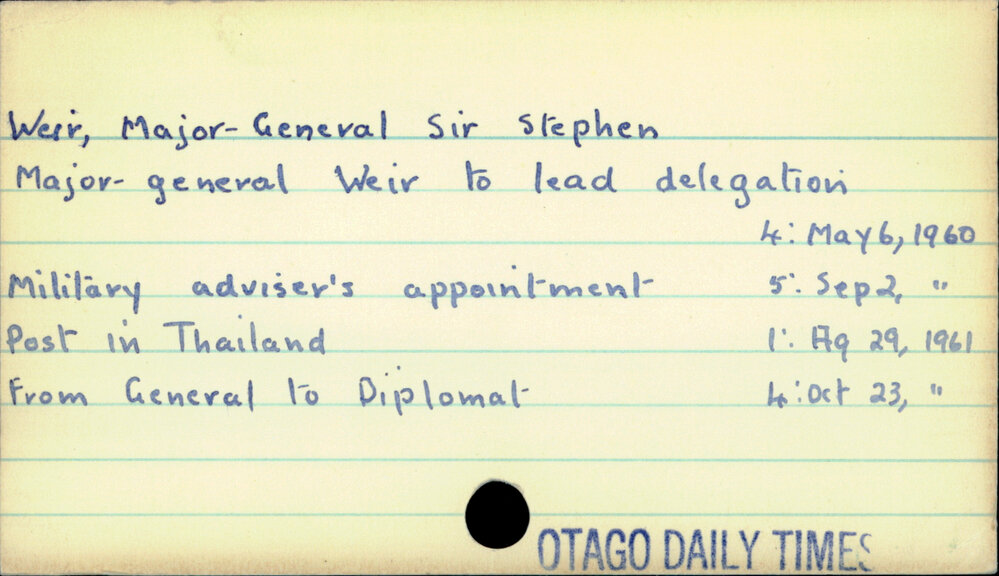 Weir, Major-General Sir Stephen
Major-general Weir to lead delegation
4: May 6, 1960
Military adviser's appointment 5: Sep 2, "
Post in Thailand 1: Ag 29, 1961
From General to Diplomat 4: Oct 23, "
OTAGO DAILY TIMES